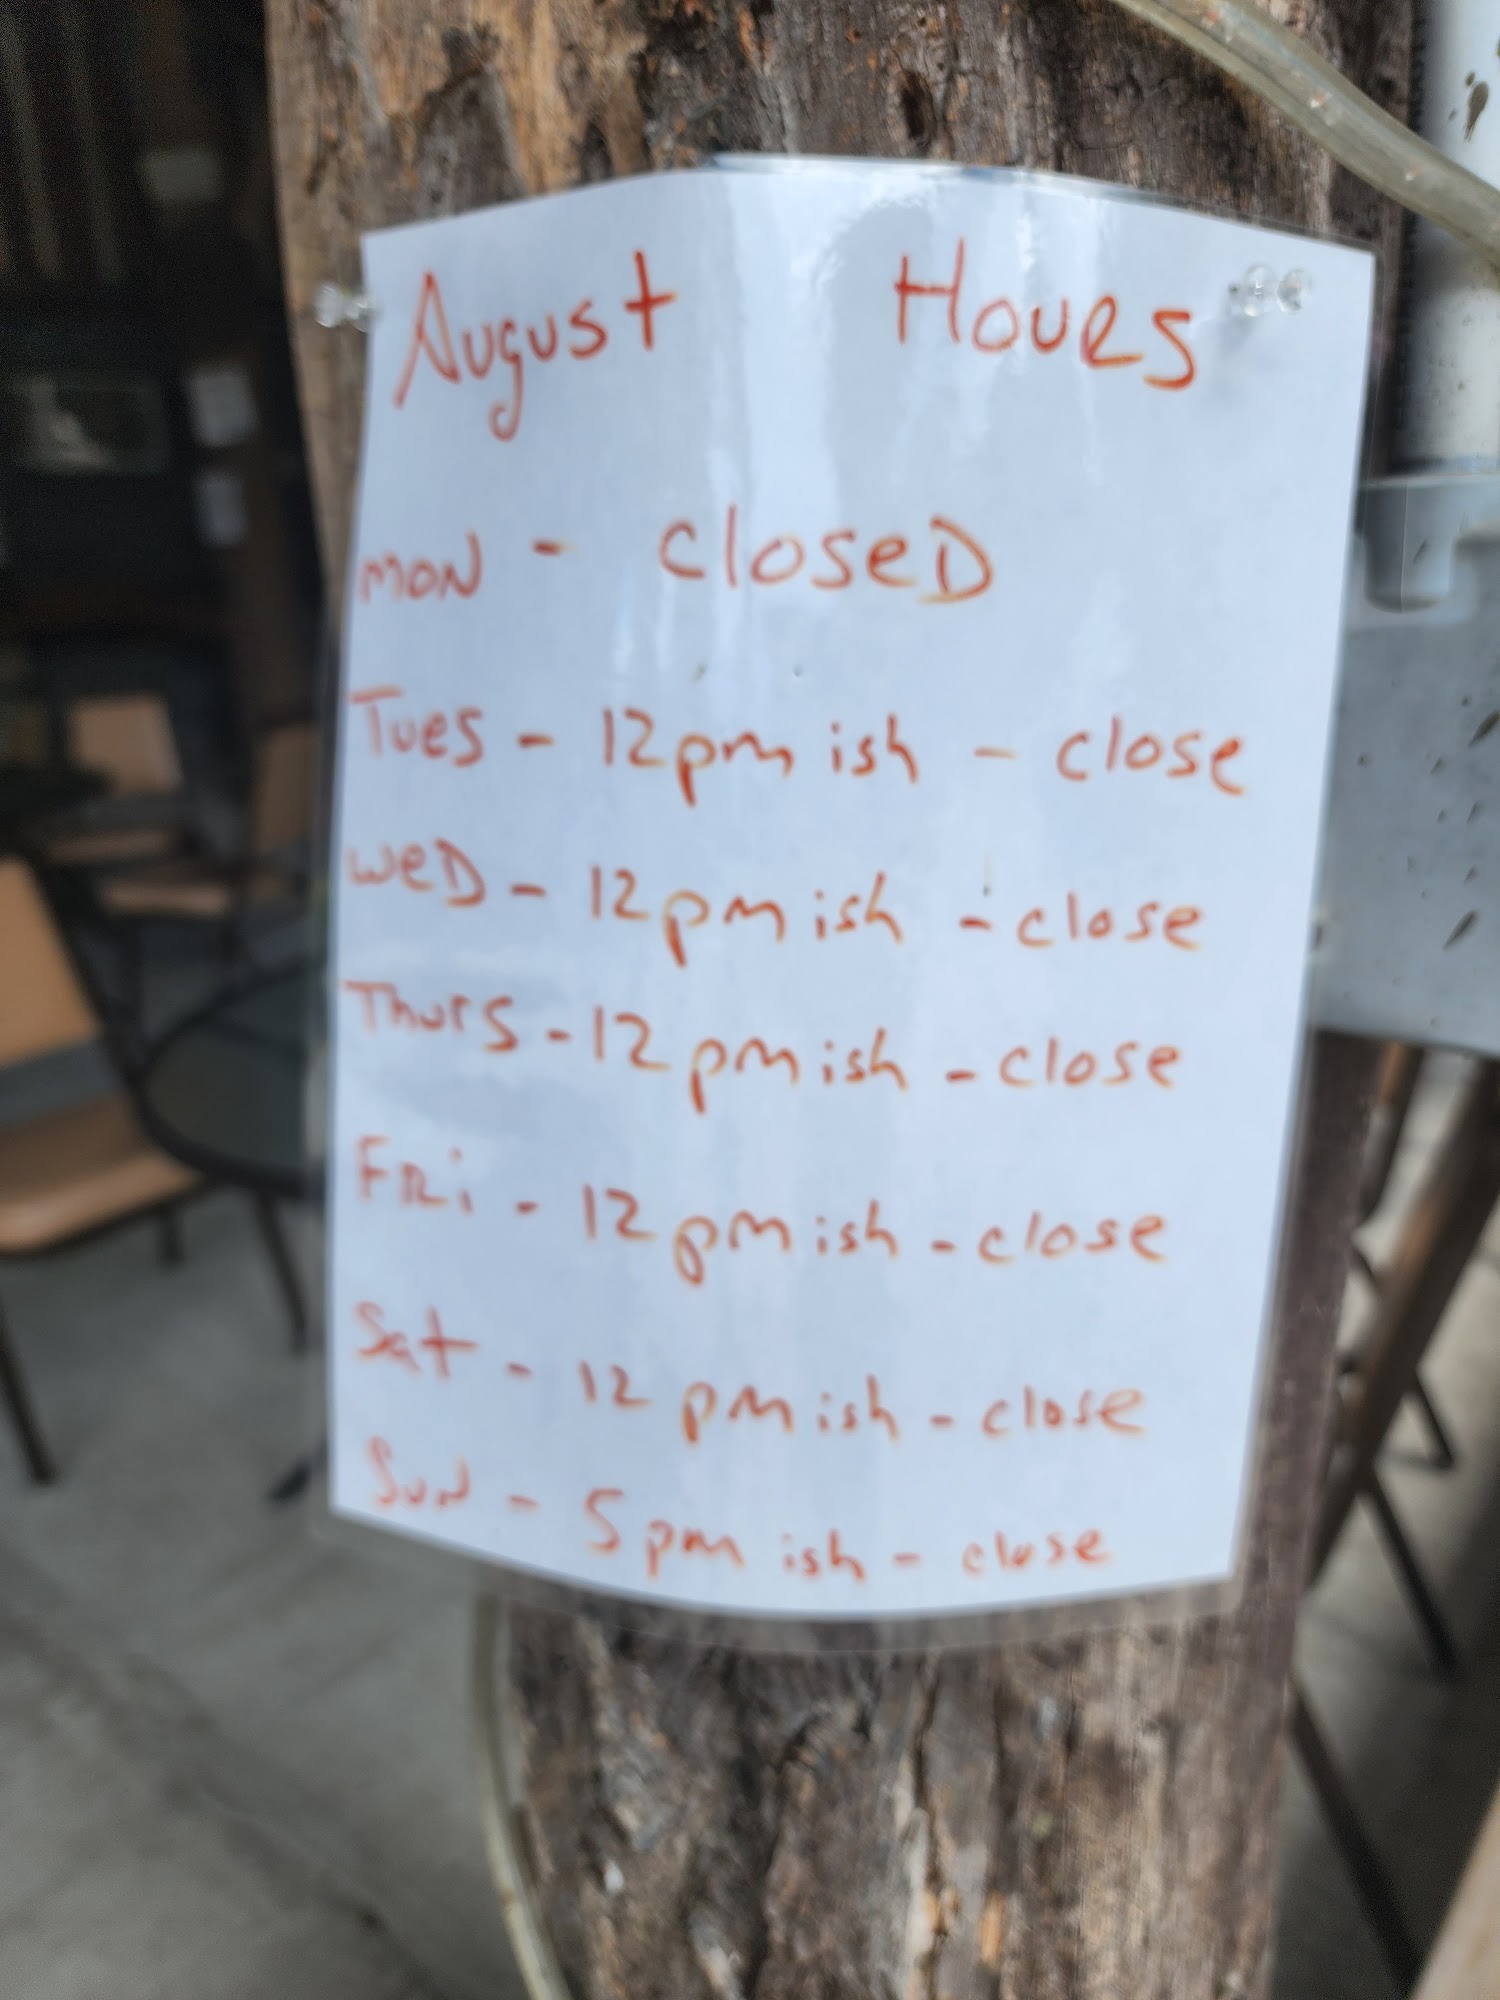 August Hours
MON - closeD
Tues - 12pm ish - close
WeD - 12pm ish - close
Thurs - 12pm ish - close
FRi - 12pm ish - close
Sat - 12pm ish - close
SuN - 5pm ish - close